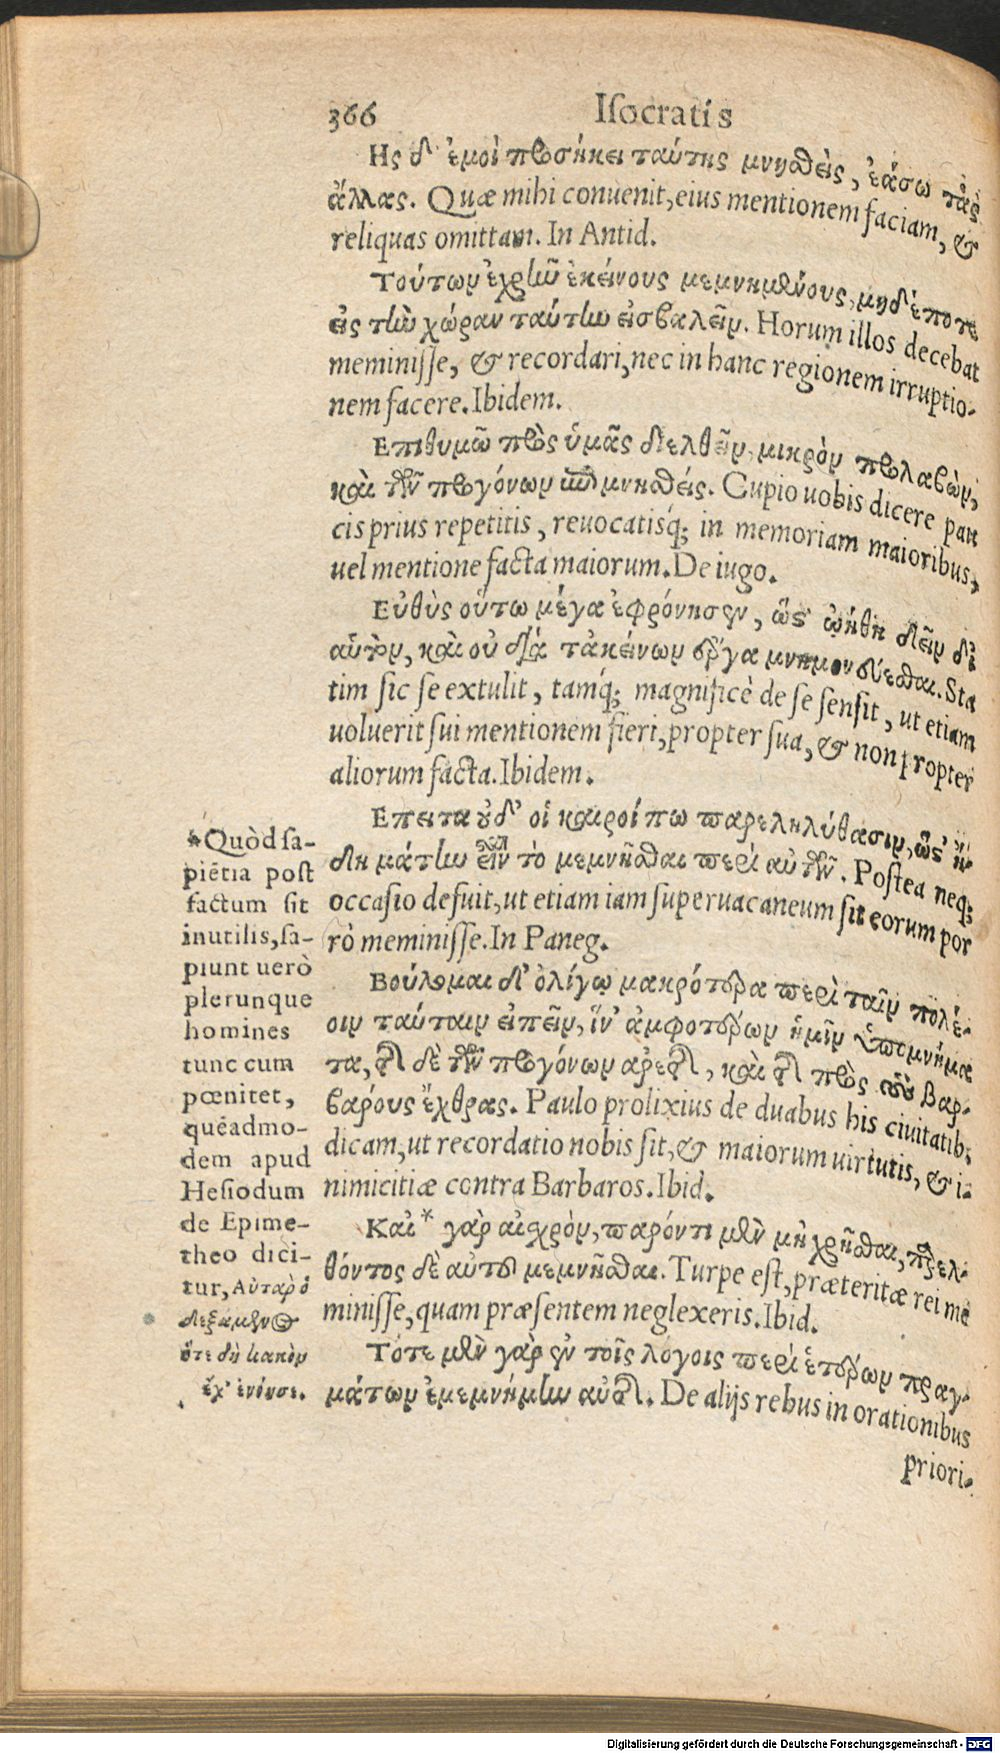 366 Iſocratis
Ης δ' ἐμοὶ προσήκει ταύτης μνησθεὶς, ἐάσω τὰς
ἄλλας. Quæ mihi conuenit, eius mentionem faciam, &
reliquas omittam. In Antid.
Τούτων ἐχρῆν ἐκείνους μεμνημένους, μηδέποτε
εἰς τὴν χώραν ταύτην εἰσβαλεῖν. Horum illos decebat
meminiſſe, & recordari, nec in hanc regionem irruptio-
nem facere. Ibidem.
Επιθυμῶ πρὸς ὑμᾶς διελθεῖν, μικρὸν προλαβὼν,
καὶ τῶν προγόνων μνησθείς. Cupio uobis dicere pau
cis prius repetitis, reuocatisq́; in memoriam maioribus,
uel mentione facta maiorum. De iugo.
Εὐθὺς οὕτω μέγα ἐφρόνησεν, ὥστ' ᾠήθη δεῖν δι'
αὑτὸν, καὶ οὐ διὰ τἀκείνων ἔργα μνημονεύεσθαι. Sta
tim ſic ſe extulit, tamq́; magnificè de ſe ſenſit, ut etiam
uoluerit ſui mentionem fieri, propter ſua, & non propter
aliorum facta. Ibidem.
Επειτα οὐδ' οἱ καιροί πω παρεληλύθασιν, ὥστ' ἤ-
δη μάτην εἶναι τὸ μεμνῆσθαι περὶ αὐτῶν. Poſtea neq;
occaſio defuit, ut etiam iam ſuperuacaneum ſit eorum por
rò meminiſſe. In Paneg.
Βούλομαι δ' ὀλίγῳ μακρότερα περὶ ταῖν πολέ-
οιν ταύταιν εἰπεῖν, ἵν' ἀμφοτέρων ἡμῖν ὑπομνήμα
τα, τῆς δὲ τῶν προγόνων ἀρετῆς, καὶ τῆς πρὸς τοὺς βαρ-
βάρους ἔχθρας. Paulo prolixius de duabus his ciuitatib.
dicam, ut recordatio nobis ſit, & maiorum uirtutis, & i-
nimicitiæ contra Barbaros. Ibid.
Καὶ* γὰρ αἰσχρὸν, παρόντι μὲν μὴ χρῆσθαι, παρελ-
θόντος δὲ αὐτοῦ μεμνῆσθαι. Turpe eſt, præteritæ rei me
miniſſe, quam præſentem neglexeris. Ibid.
Τότε μὲν γὰρ ἐν τοῖς λόγοις περὶ ἑτέρων πραγ-
μάτων ἐμεμνήμην αὐτῆς. De alijs rebus in orationibus
priori-
*Quòd ſa-
piẽtia poſt
factum ſit
inutilis, ſa-
piunt uerò
plerunque
homines
tunc cum
pœnitet,
quẽadmo-
dem apud
Heſiodum
de Epime-
theo dici-
tur, Αὐταρ ὁ
δεξάμενος
ὅτε δὴ κακὸν
ἔχ' ἐνόησε.
Digitalisierung gefördert durch die Deutsche Forschungsgemeinschaft - DFG